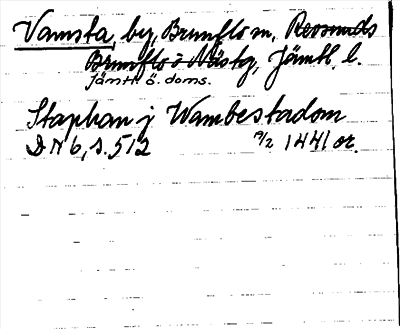 Vamsta, by, Brunflo sn, Revsunds
Brunflo o Näs tg, Jämtl. l.
Jämtl. ö. doms.
Staphan j Wambestadom
DN 6, s. 512 /2 1441 or.